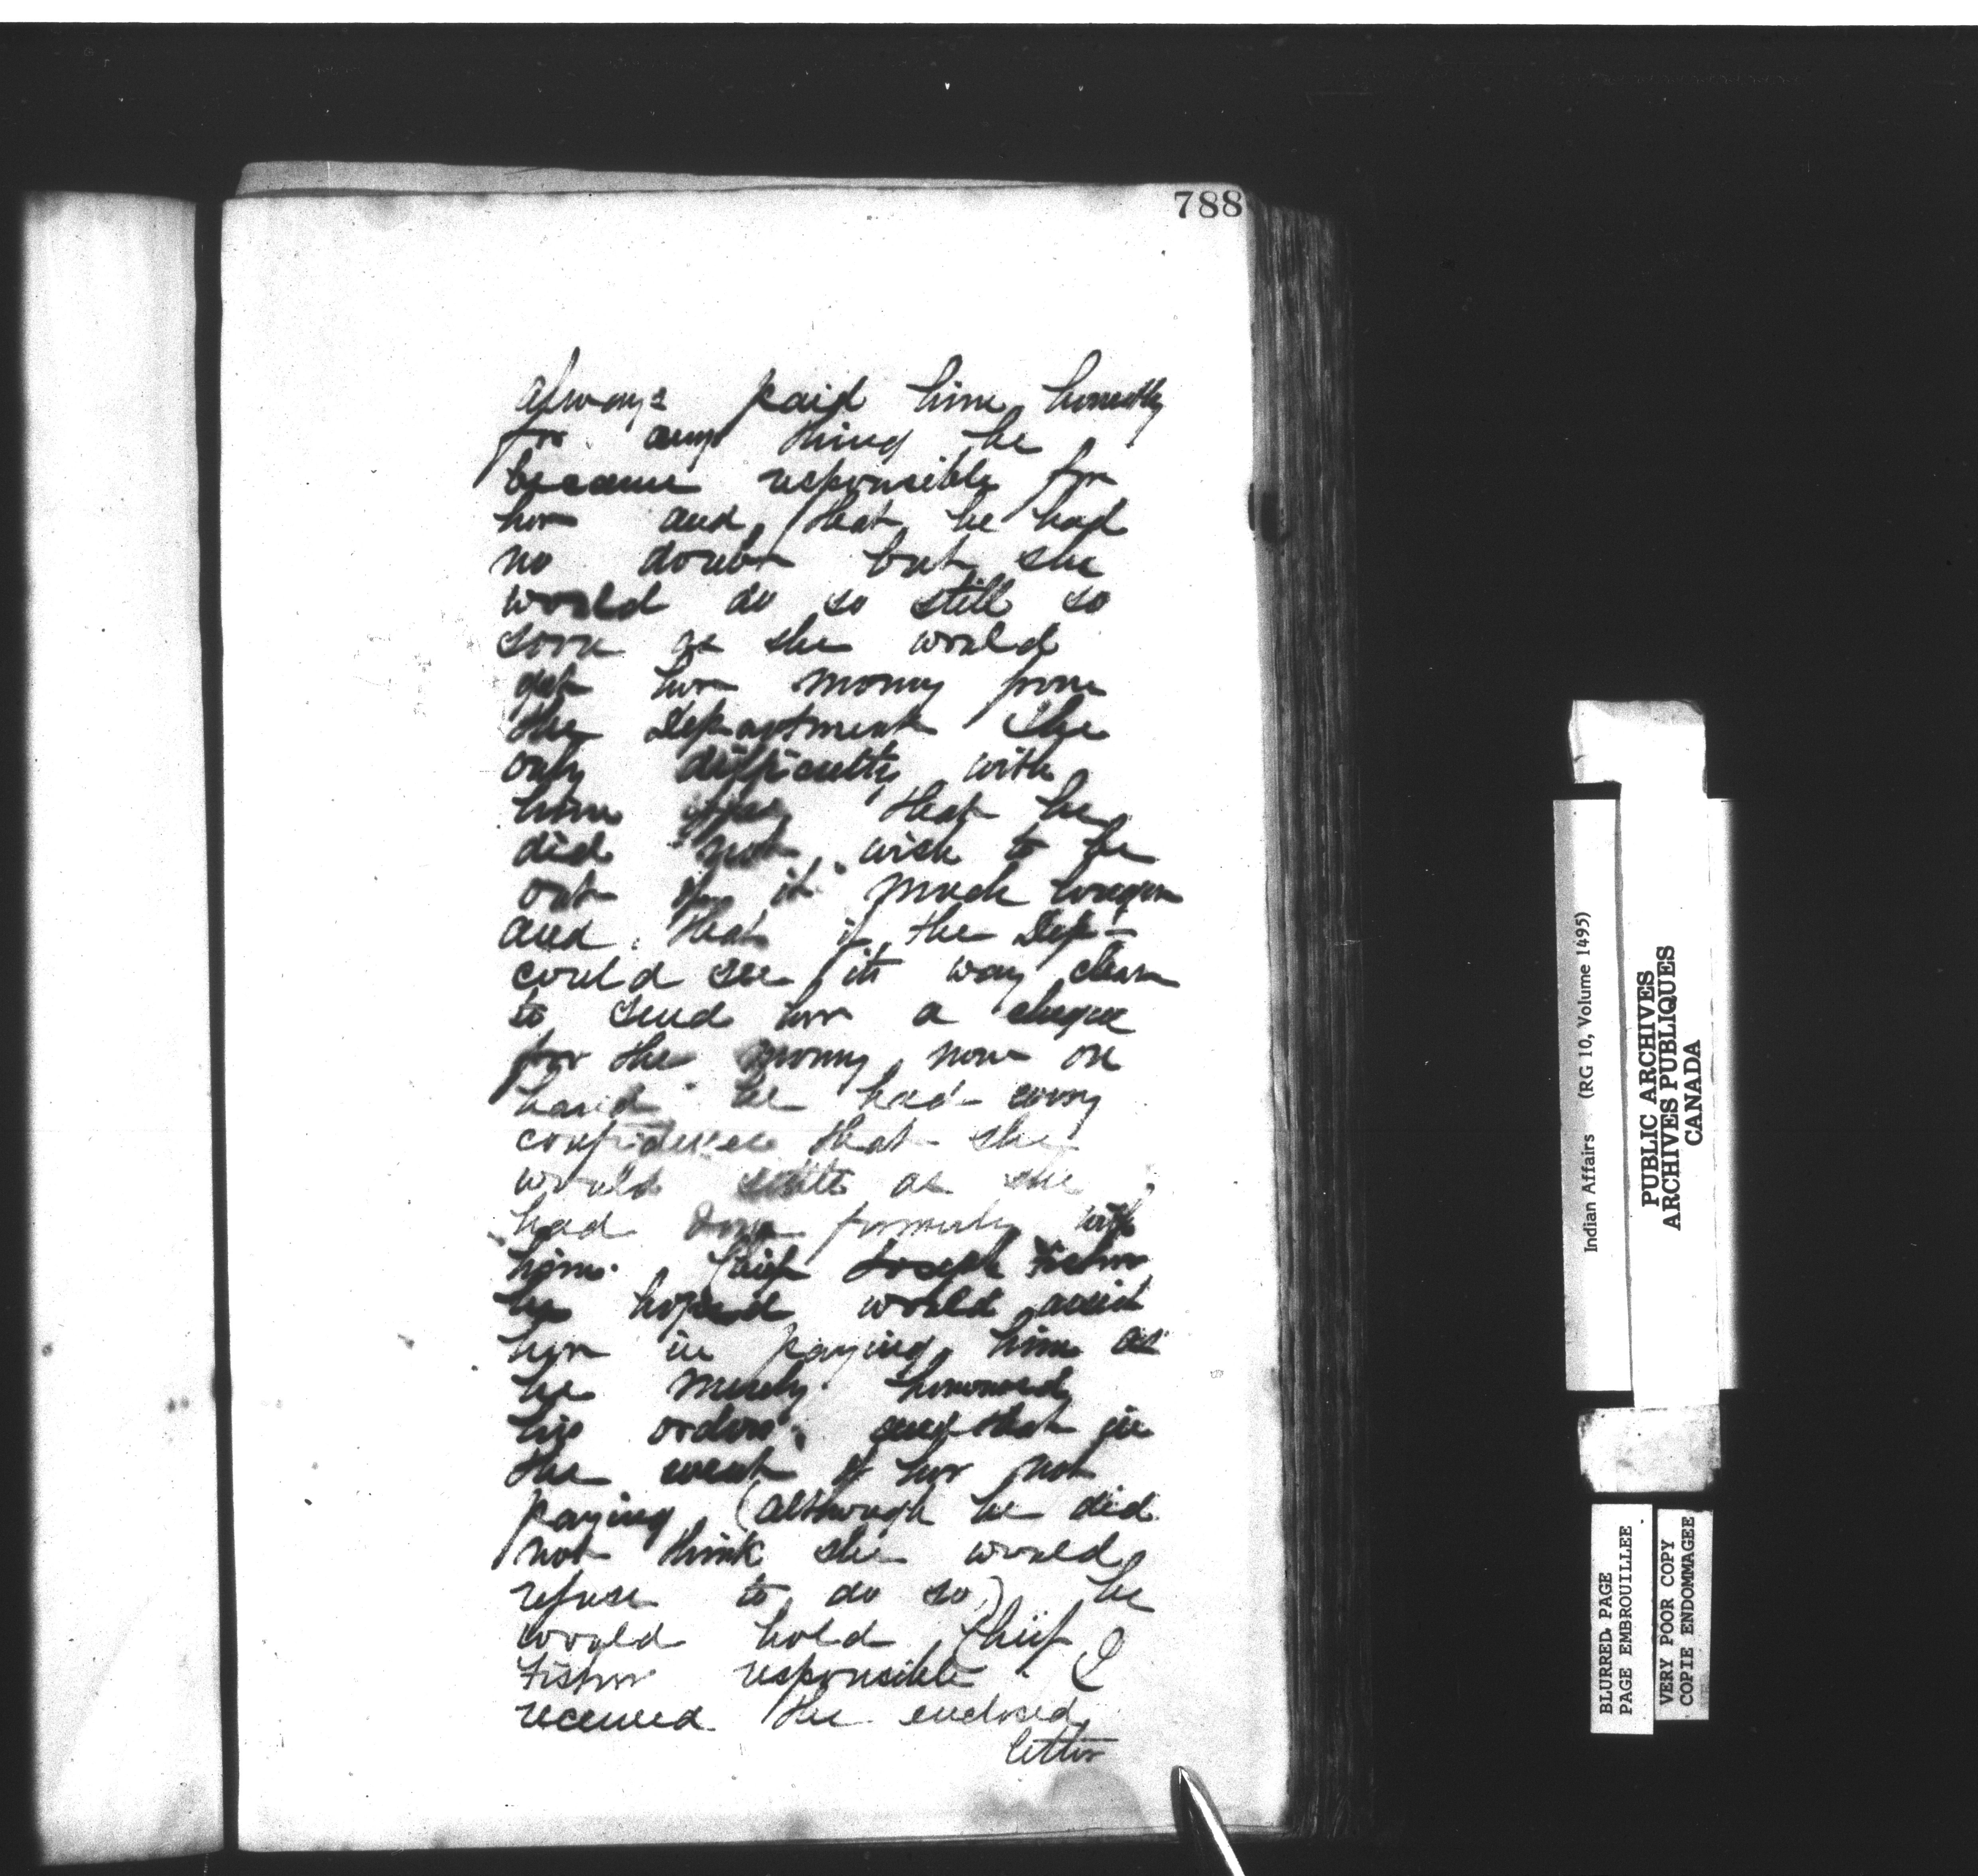 788
always paid him honestly
for any thing he
became responsible for
her and that he had
no doubt but she
would do so still so
soon as she would
get her money from
the Department The
only difficulty with
him was that he
did not wish to be
out of it much longer
and that if the Dept
could see its way clear
to send her a cheque
for the money now on
hand he had every
confidence that she
would settle as she
had done formerly with
him. Chief Joseph Fisher
he hoped would assist
her in paying him as
he merely honored
his orders, and that in
the event of her not
paying (although he did
not think she would
refuse to do so) he
would hold Chief
Fisher responsible. I
received the enclosed
letter
Indian Affairs (RG 10, Volume 1495)
PUBLIC ARCHIVES
ARCHIVES PUBLIQUES
CANADA
BLURRED PAGE
PAGE EMBROUILLEE
VERY POOR COPY
COPIE ENDOMMAGEE